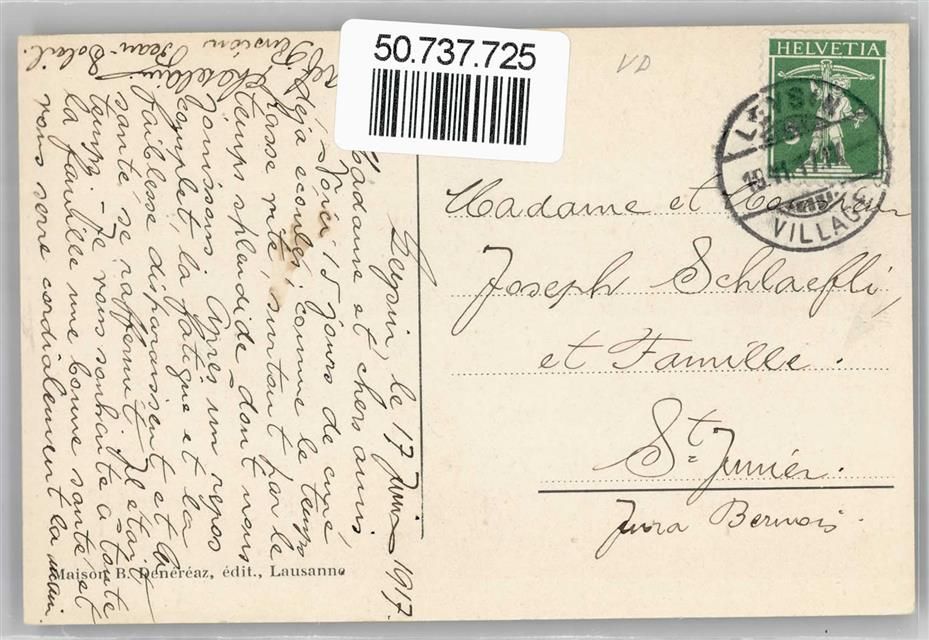 50.737.725
VD
HELVETIA
LEYSIN
VILLAGE
Leysin, le 17 Juin 1917.
Madame et chers amis,
Voici 15 jours de cure
déjà écoulés; comme le temps
passe vite, surtout par le
temps splendide dont nous
jouissons. Après un repos
complet, la fatigue et la
faiblesse disparaissent et la
santé se raffermit. Il était
temps. Je vous souhaite à toute
la famille une bonne santé et
vous serre cordialement la main.
Pension
Beau-Soleil.
Madame et Monsieur
Joseph Schlaefli,
et Famille.
St-Imier.
Jura Bernois.
Maison B. Denéréaz, édit., Lausanne